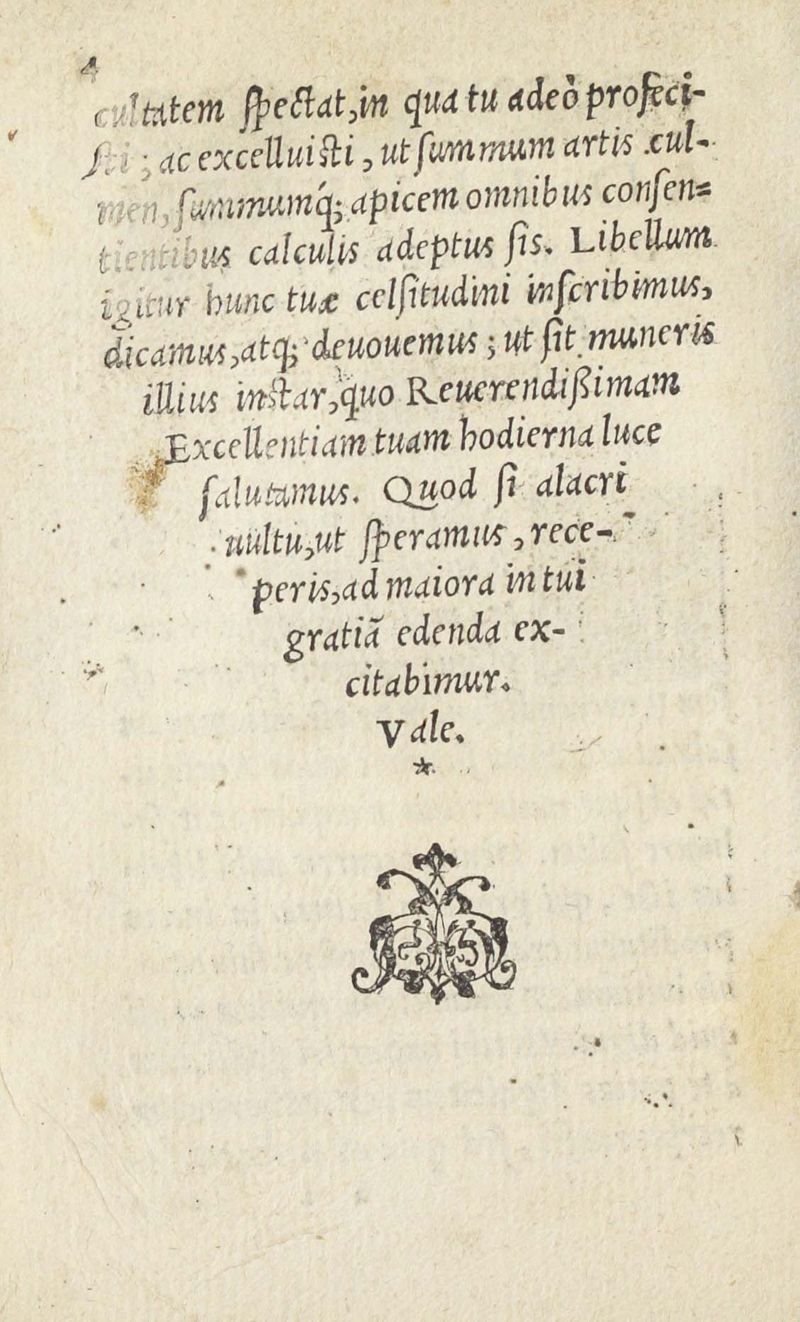 4
cultatem spectat, in qua tu adeò profeci-
sti; ac excelluisti, ut summum artis cul-
men, summumq́; apicem omnibus consen=
tientibus calculis adeptus sis. Libellum
igitur hunc tuæ celsitudini inscribimus,
dicamus, atq; deuouemus; ut sit muneris
illius instar, quo Reuerendißimam
Excellentiam tuam hodierna luce
salutamus. Quod si alacri
uultu, ut speramus, rece-
peris, ad maiora in tui
gratiã edenda ex-
citabimur.
Vale.
*